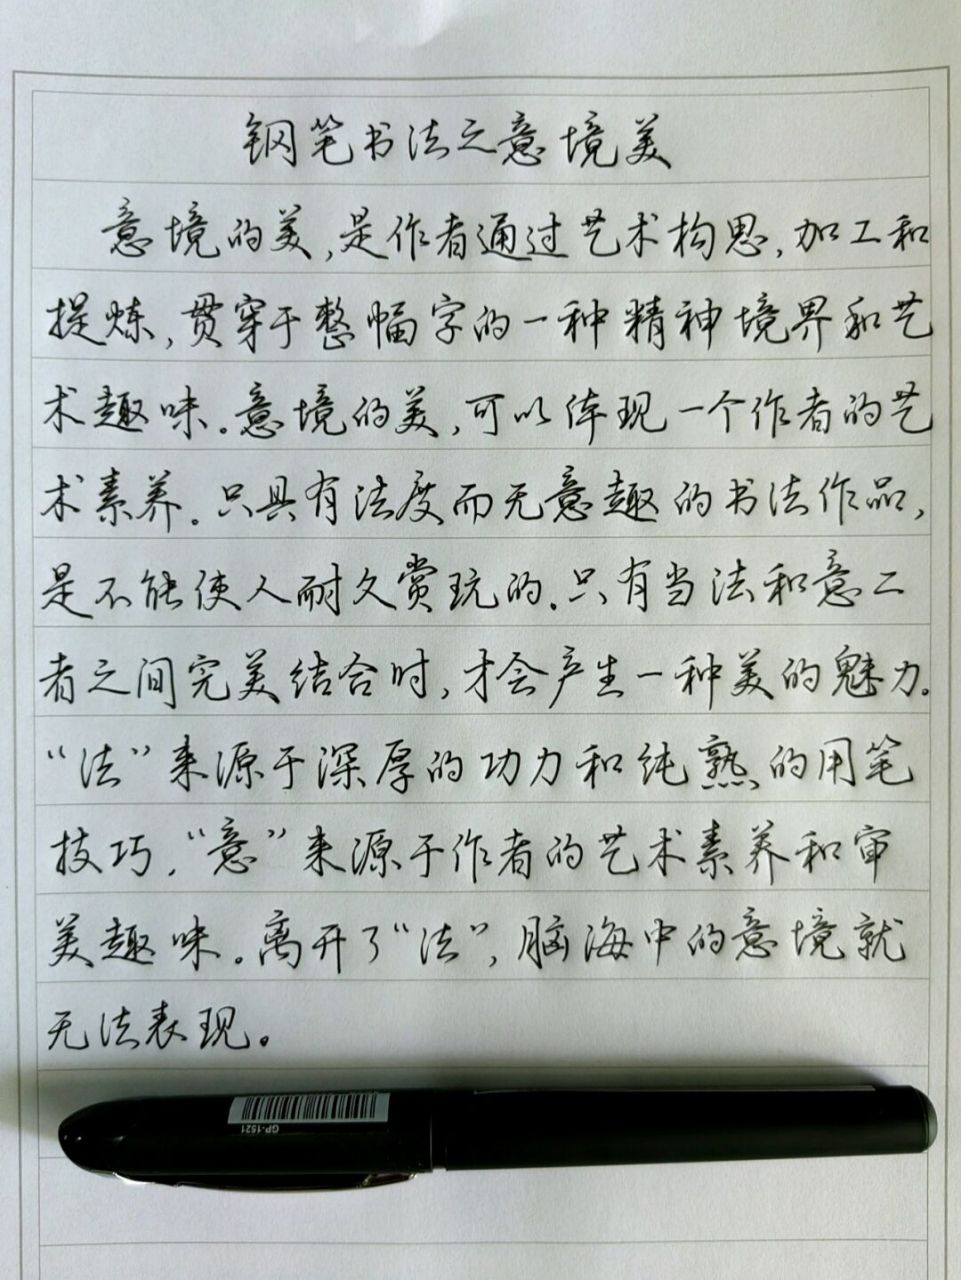 钢笔书法之意境美
意境的美,是作者通过艺术构思,加工和
提炼,贯穿于整幅字的一种精神境界和艺
术趣味。意境的美,可以体现一个作者的艺
术素养。只具有法度而无意趣的书法作品,
是不能使人耐久赏玩的。只有当法和意二
者之间完美结合时,才会产生一种美的魅力。
“法”来源于深厚的功力和纯熟的用笔
技巧,“意”来源于作者的艺术素养和审
美趣味。离开了“法”,脑海中的意境就
无法表现。
GP-1521